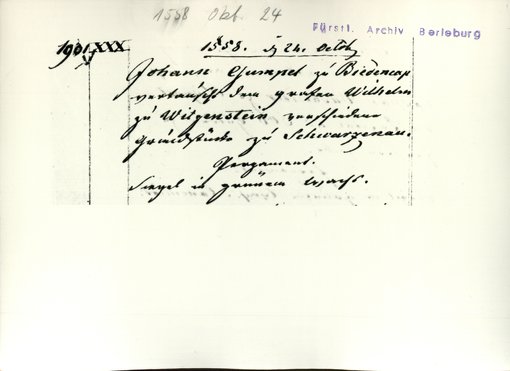 1558 Okt. 24
Fürstl. Archiv Berleburg
1901 XXX
1558. d 24. Octob
Johann Gumpel zu Biedencap
vertauscht dem grafen Wilhelm
zu Witgenstein verschiedene
Grundstücke zu Schwarzenau.
Pergament.
Siegel in grünem Wachs.